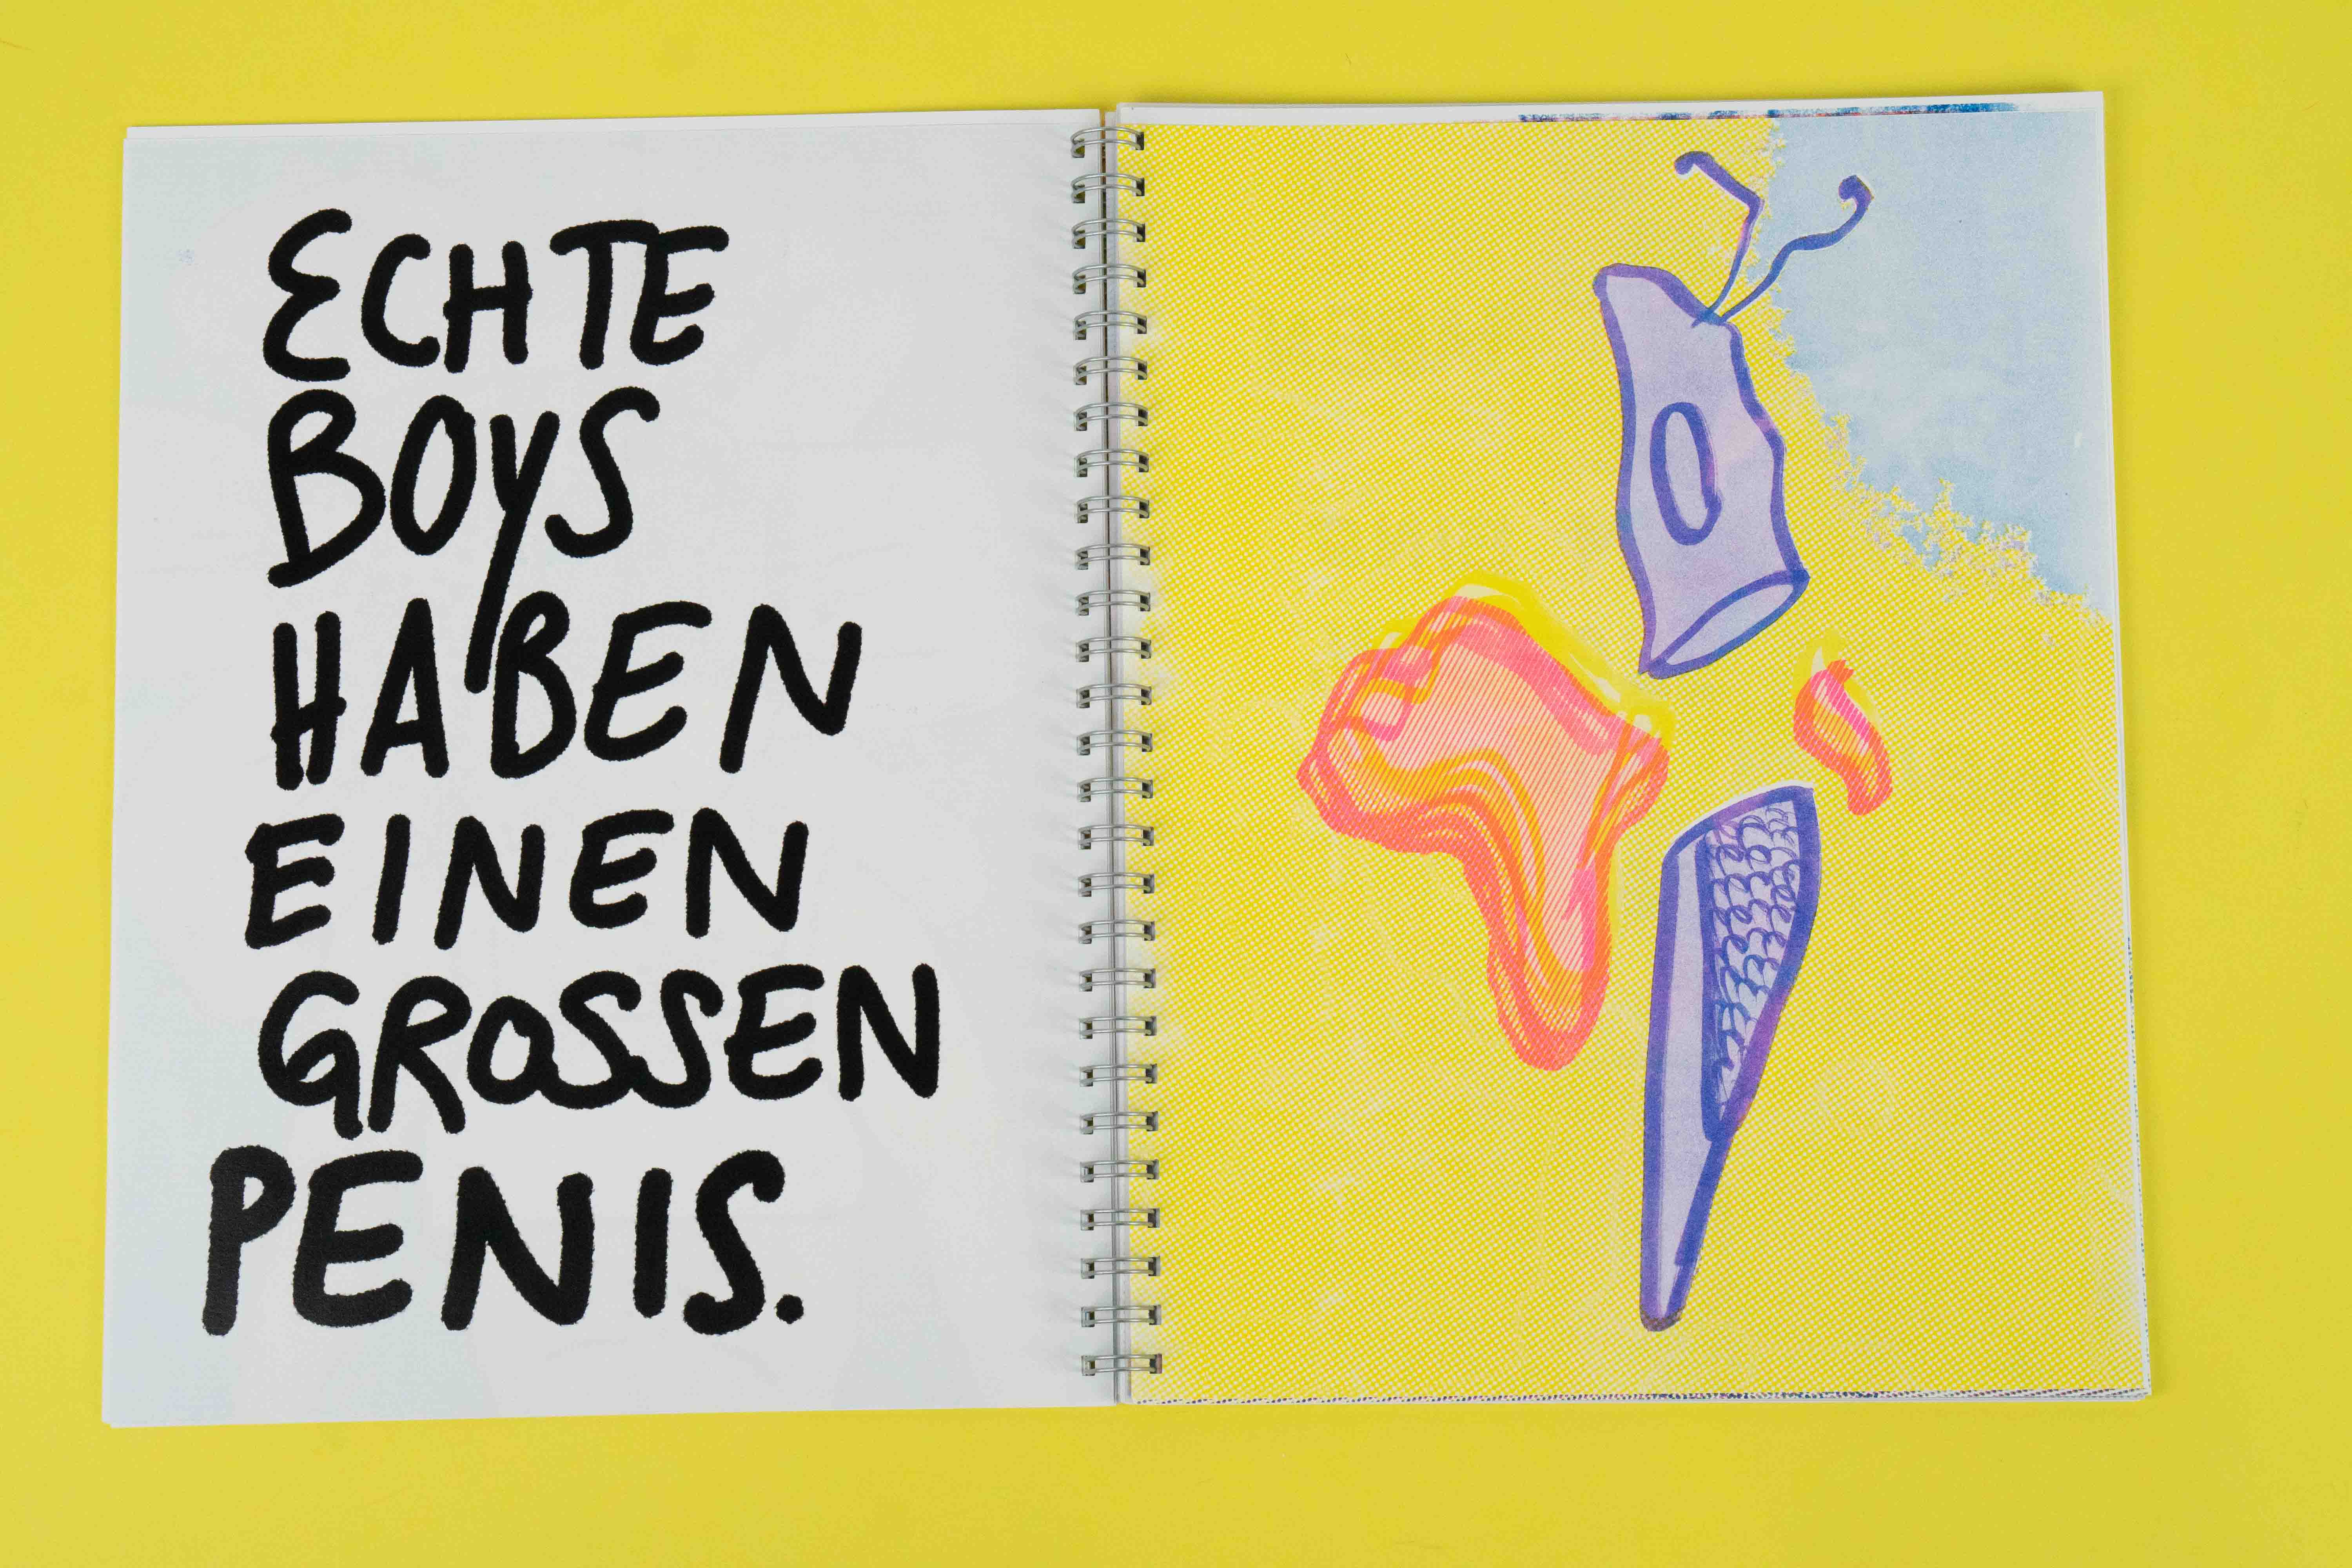 ECHTE
BOYS
HABEN
EINEN
GROSSEN
PENIS.